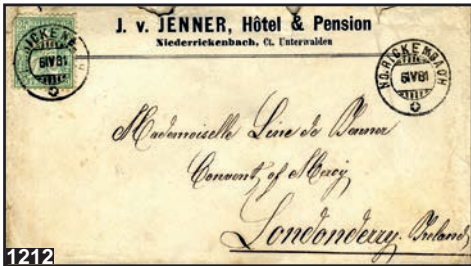 J. v. JENNER, Hôtel & Pension
Niederrickenbach, Ct. Unterwalden
RICKENB
6IV81
ND. RICKENBACH
6IV81
Mademoiselle Line de Jenner
Convent of Mercy
Londonderry. Ireland
1212